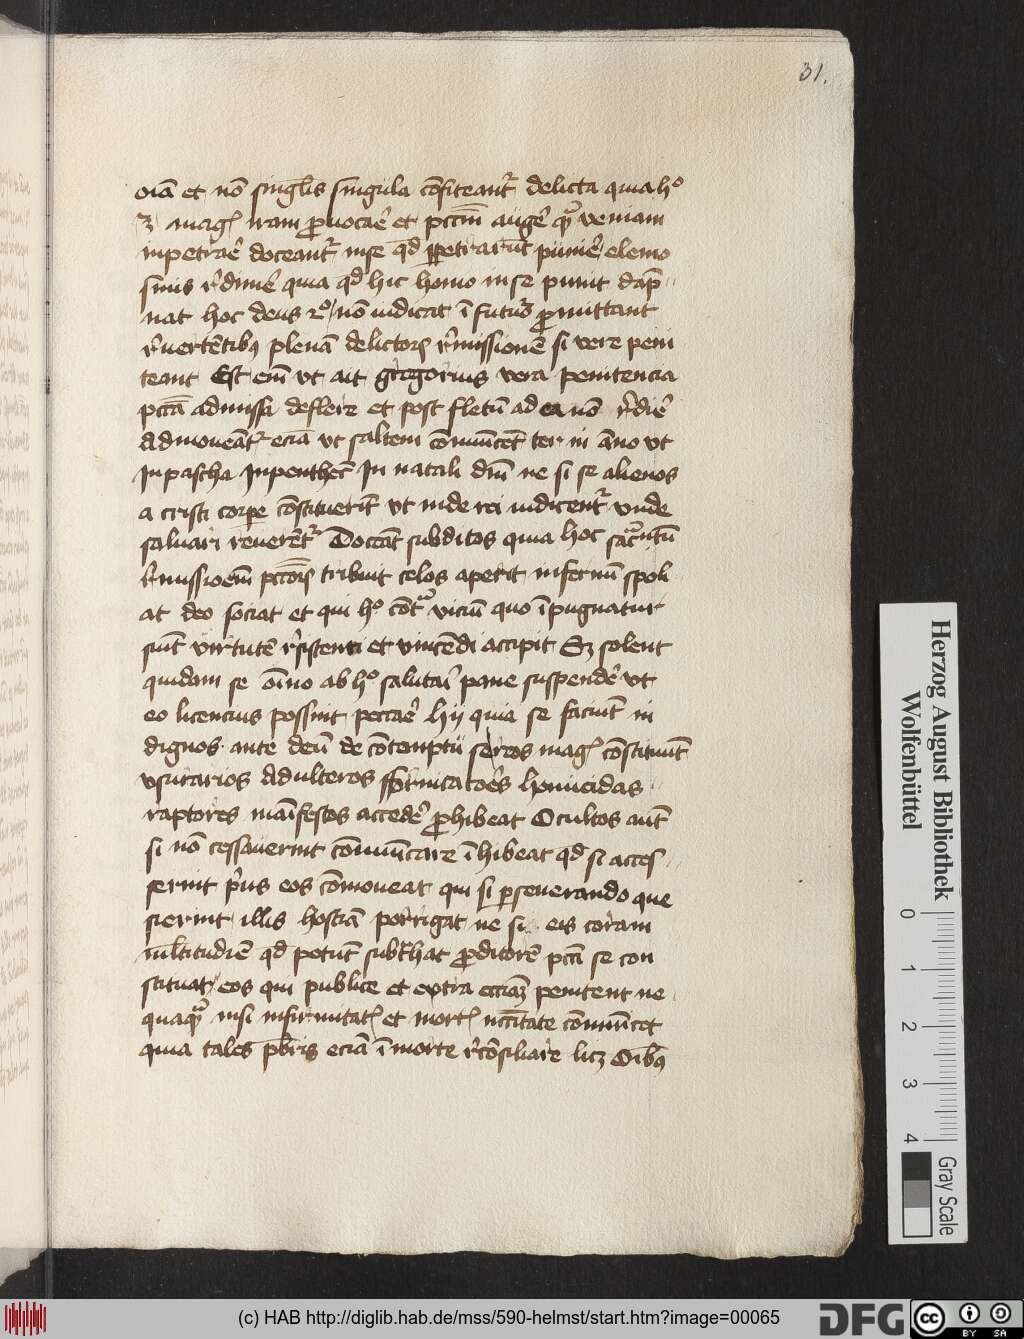 31.
oīa et nō singlis singula cōfiteant delicta quia hº
ʒ magꝭ iram ꝓuocaē et pccm augē qꝫ veniam
inpetrae doceant inse qd ꝑpetrarūt punie elemo
sinis rdime quia qd hic homo inse punit dāp
nat hoc deus rº nō iudicat ī futuº ꝓmittant
reuertētibꝫ plenā delictoꝝ rmissionē si vere peni
teant Est em vt ait gregorius vera penitencia
pccā admissa deflere et post fletū ad ea nō rdie
Admoueāt eciā vt saltem cōmūicēt ter in āno vt
In pascha In penthecᵗ In natali dm̄ ne si se alienos
a cristi corpe cōstituerīt vt inde rei iudicent vnde
saluari reuerēt Doceāt subditos quia hoc sacᵃmtū
rmissioem pccoꝝ tribuit celos aperit infernū spoli
at deo sociat et qui hº cōtᵃ viciū quo īpugnatur
sūt virtutē rsistendi et vincēdi accipit Sꝫ solent
quidam se oīno ab hº salutai pane suspende vt
eo licencius possint peccae hij quia se faciūt in
dignos ante deū de cōtemptu se reos magꝭ cōstituūt
vsurarios Adulteros fornicatoēs homicidas
raptores maīfestos accede ꝓhibeat Ocultos aūt
si nō cessauerint cōmūicare īhibeat qd si acces
serint pus eos cōmoueat qui si ꝑseuerando que
sierint illis hostiā porrigat ne si eis coram
multitudiē qd petūt subthat ꝓditorē pccī se con
stituat eos qui publice et extra ecciaꝫ penitent ne
quaqꝫ nisi infirmitatꝭ et mortꝭ nccitate cōmūicet
quia tales pbris eciā ī morte rcōsiliare licꝫ Oībꝫ
Herzog August Bibliothek
Wolfenbüttel
0 1 2 3 4
Gray Scale
(c) HAB http://diglib.hab.de/mss/590-helmst/start.htm?image=00065
DFG
cc BY SA